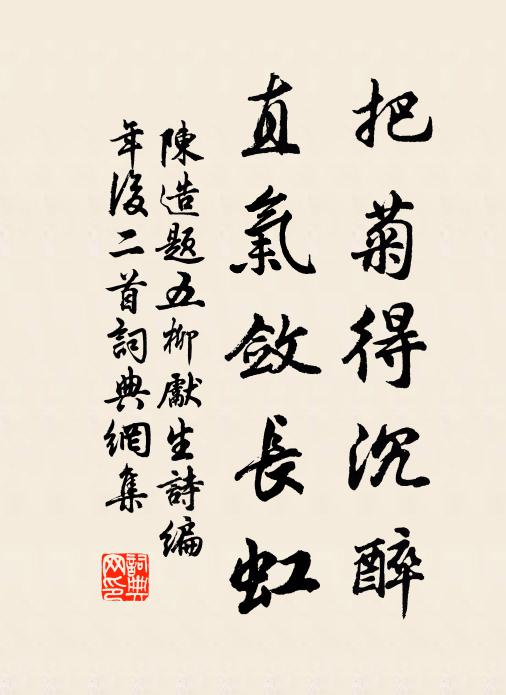 把菊得沉醉
直氣斂長虹
陳造題五柳獻生詩編
年後二首詞典網集
詞典网印